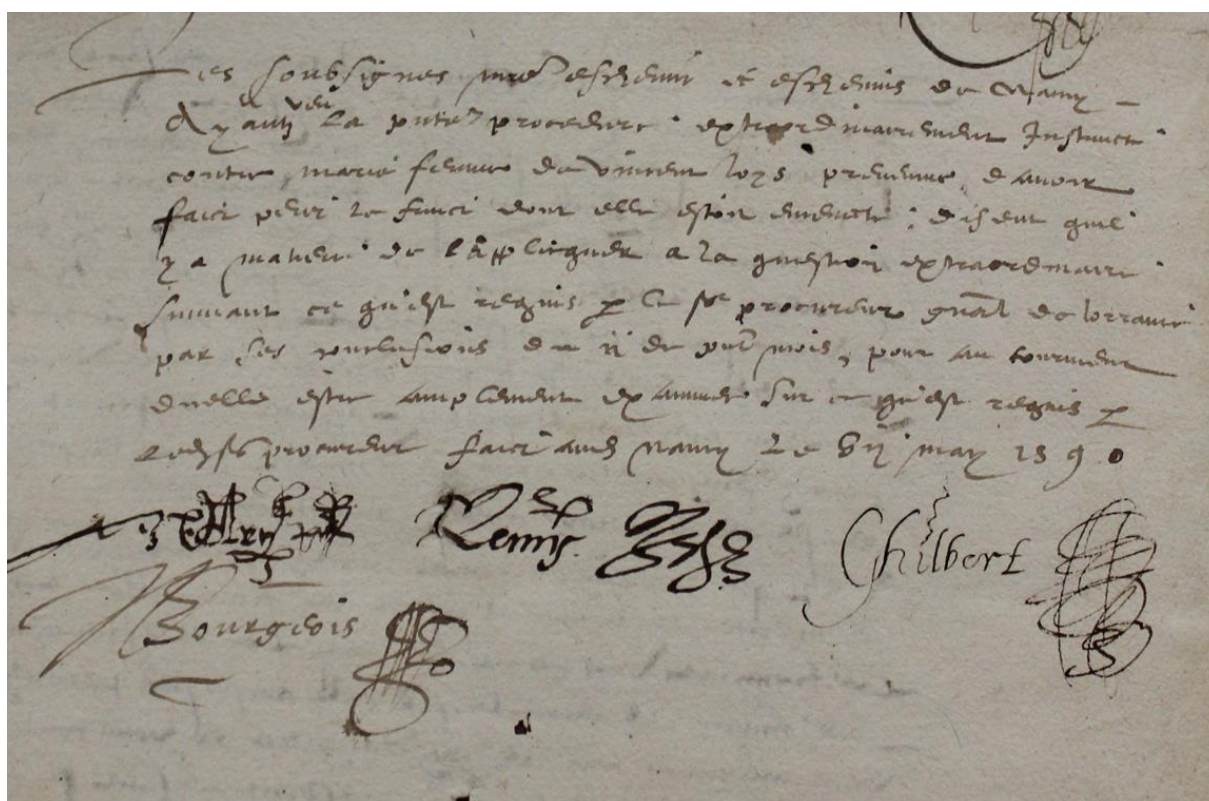 Les soubsignes mre eschevin et eschevins de Nancy
Ayantz veu la pnte procedure extraordinairement Instruicte
contre marie femme de vincent loys prevenue d'avoir
faict perir le fruict dont elle estoit enceincte, disent quil
y a matiere de l'applicquer a la question extraordinaire
suivant ce qu'est requis p le sr procureur gnãl de lorraine
par ses conclusions du ii de pnt mois, pour au tourment
d'icelle estre amplement examinee sur ce qu'est requis p
ledit sr procureur faict aud Nancy le vii may 1590
Remy
Chilbert
Bourgeois